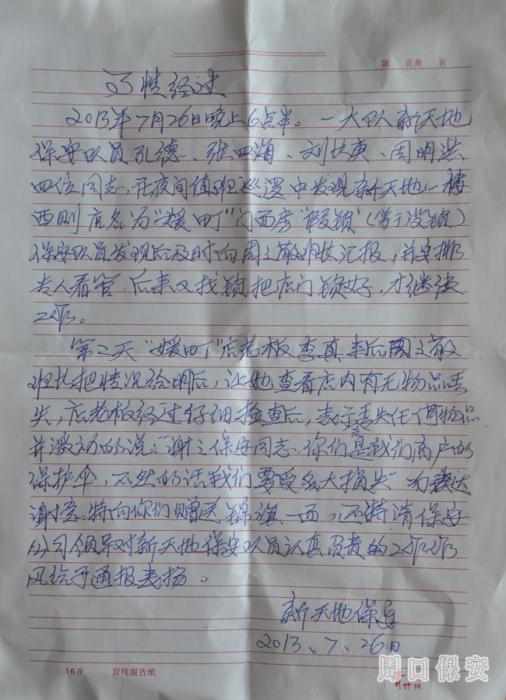 第 页共 页
事情经过
2013年7月26日晚上6点半。一大队新天地
保安队员孔德、张四海、刘长庚、周明洪
四位同志,在夜间值班巡逻中发现新天地一楼
西则店名为“媛町”门面房“假锁”(等于没锁)
保安队员发现后及时向周立敬班长汇报,并安排
专人看管 后来又找锁把店门锁好,才继续
工作。
第二天“媛町”店老板 查真 来后周立敬
班长把情况给明后,让他查看店内有无物品丢
失,店老板经过仔细检查后,表示丢失任何物品
并激动的说:“谢谢保安同志.你们是我们商户的
保护伞,不然的话我们要受多大损失” 为表达
谢意.特向你们赠送锦旗一面,还特请保安
公司领导对新天地保安队员认真负责的工作作
风给予通报表扬。
新天地保安
2013.7.26日
16开 双线报告纸
周口保安